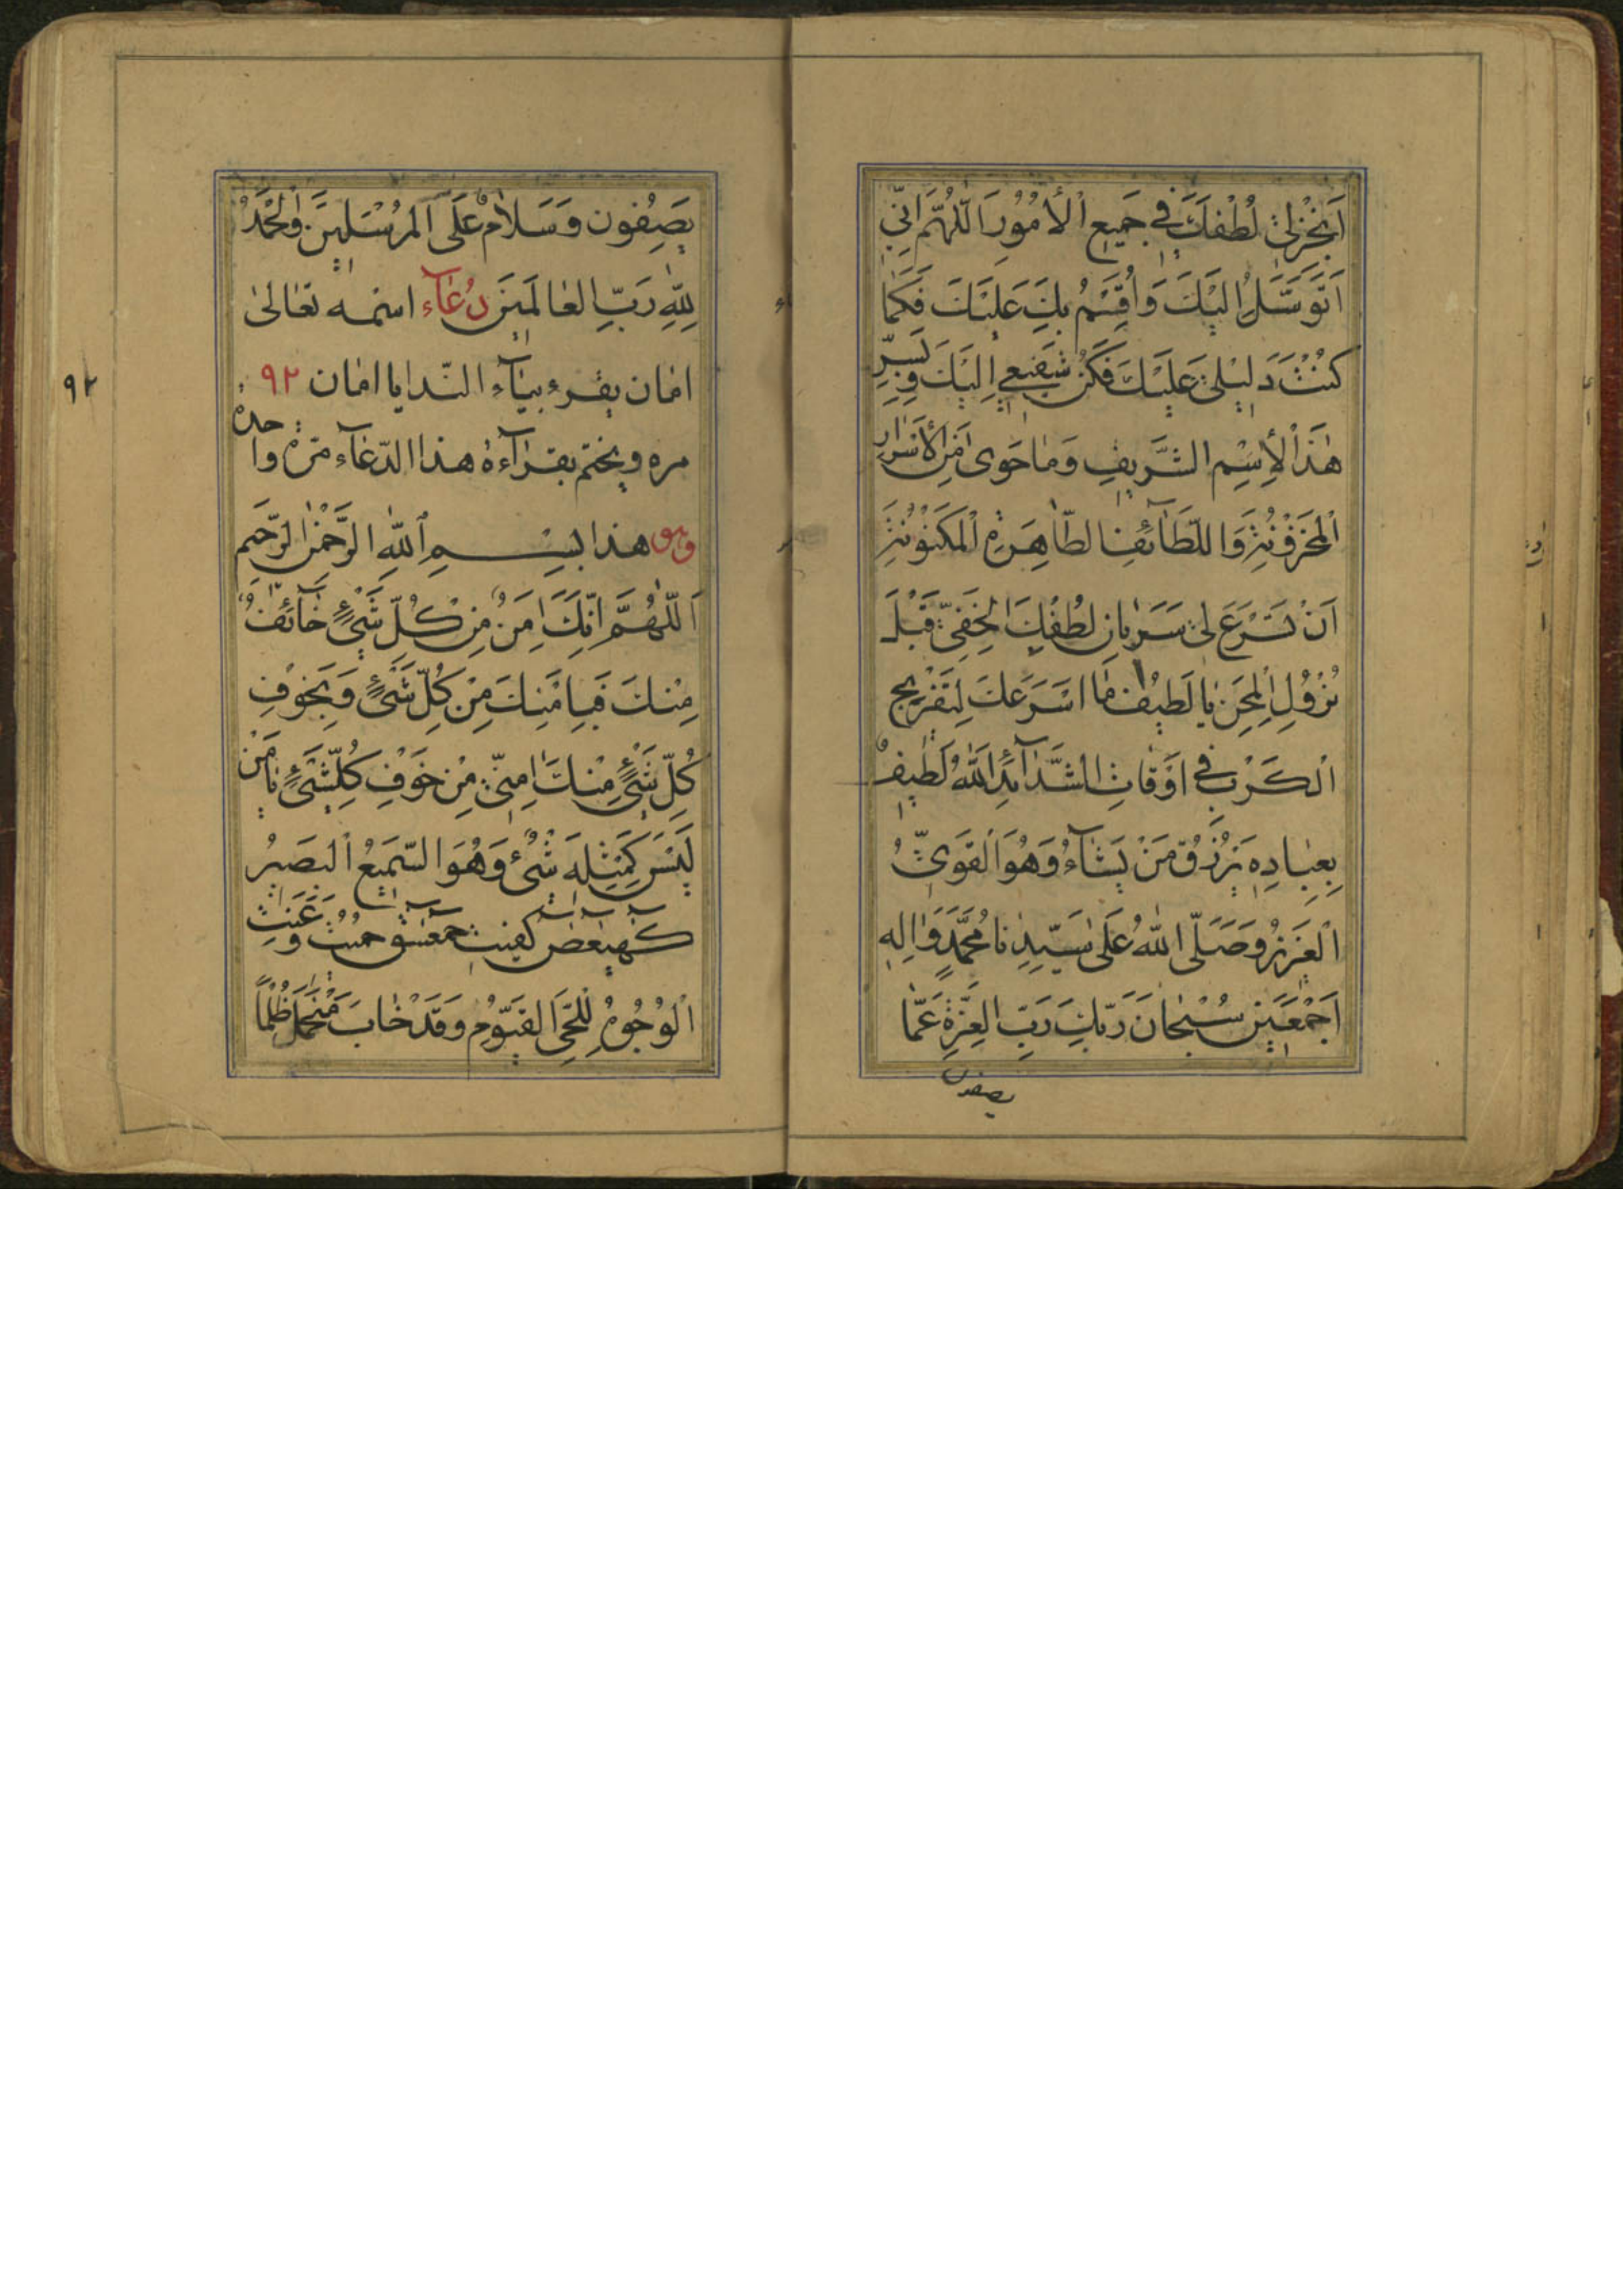 اَنْجِزْ لِیْ لُطْفَكَ فِی جَمِیعِ الْاُمُوْرِ اَللّٰهُمَّ اِنّیِ
اَتَوَسَّلُ اِلَیْكَ وَاُقْسِمُ بِكَ عَلَیْكَ فَكَمَا
كُنْتَ دَلیْلیْ عَلَیْكَ فَكُنْ شَفِیْعیِ اِلَیْكَ وَبِسِرِّ
هٰذَا الْاِسْمِ الشَّرِیفِ وَمَا حَوىٰ مِنَ الْاَسْرَارِ
الْمَخْزُوْنَةِ وَاللَّطَآئِفِ الطّٰاهِرَةِ الْمَكْنُوْنَةِ
اَنْ تُسْرِعَ لِیْ سَرَیٰانِ لُطْفِكَ الْخَفِیِّ قَبْلَ
نُزُوْلِ الْمِحَنِ یٰا لَطِیْفُ مٰا اَسْرَعَكَ لِتَفْرِیْجِ
الْكَرْبِ فِی اَوْقٰاتِ الشَّدٰآئِدِ اَللّٰهُ لَطِیْفٌ
بِعِبٰادِهٖ یَرْزُقُ مَنْ یَشٰآءُ وَهُوَ الْقَوِیُّ
الْعَزِیْزُ وَصَلَّی اللّٰهُ عَلىٰ سَیِّدِنٰا مُحَمَّدٍ وَاٰلِهِ
اَجْمَعِیْنَ سُبْحٰانَ رَبِّكَ رَبِّ الْعِزَّةِ عَمّٰا
یصفون
یَصِفُونَ وَسَلاٰمٌ عَلَى الْمُرْسَلِیْنَ وَالْحَمْدُ
لِلّٰهِ رَبِّ الْعٰالَمِیْنَ دُعٰآء اسمه تعٰالىٰ
امٰان یقرء بیٰآء النّدا یا امٰان ٩٢
٩٢
مره ویختم بقرآءة هذا الدّعٰآء مرّة واحدة
وهو هذا بِسْمِ اللّٰهِ الرَّحْمٰنِ الرَّحِیْمِ
اَللّٰهُمَّ اِنَّكَ اٰمِنٌ مِنْ كُلِّ شَیْءٍ خٰآئِفٌ
مِنْكَ فَبِاَمْنِكَ مِنْ كُلِّ شَیْءٍ وَبِخَوْفِ
كُلِّ شَیْءٍ مِنْكَ اٰمِنّیِ مِنْ خَوْفِ كُلِّشَیْءٍ یٰا مَنْ
لَیْسَ كَمِثْلِهٖ شَیْءٌ وَهُوَ السَّمِیْعُ الْبَصِیْرُ
كهیعص كفیت حمعسق حمیت وَعَنَتِ
الْوُجُوهُ لِلْحَیِّ الْقَیُّوْمِ وَقَدْ خٰابَ مَنْ حَمَلَ ظُلْمًا